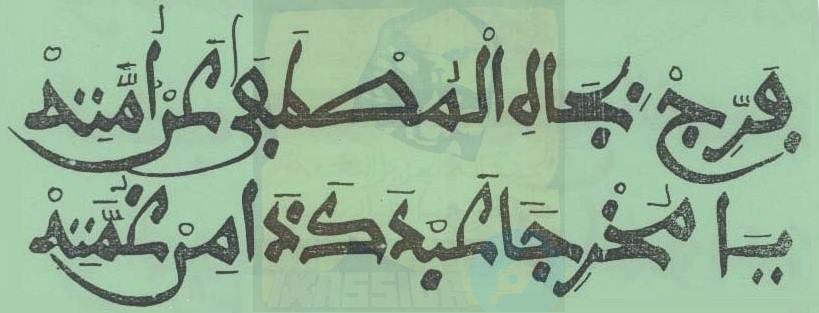 فَرِّجْ بِجَاهِ الْمُصْطَفَى عَنْ أُمَّتِهْ
يَا مُخْرِجًا عَبْدَكَ ذَا مِنْ غُمَّتِهْ